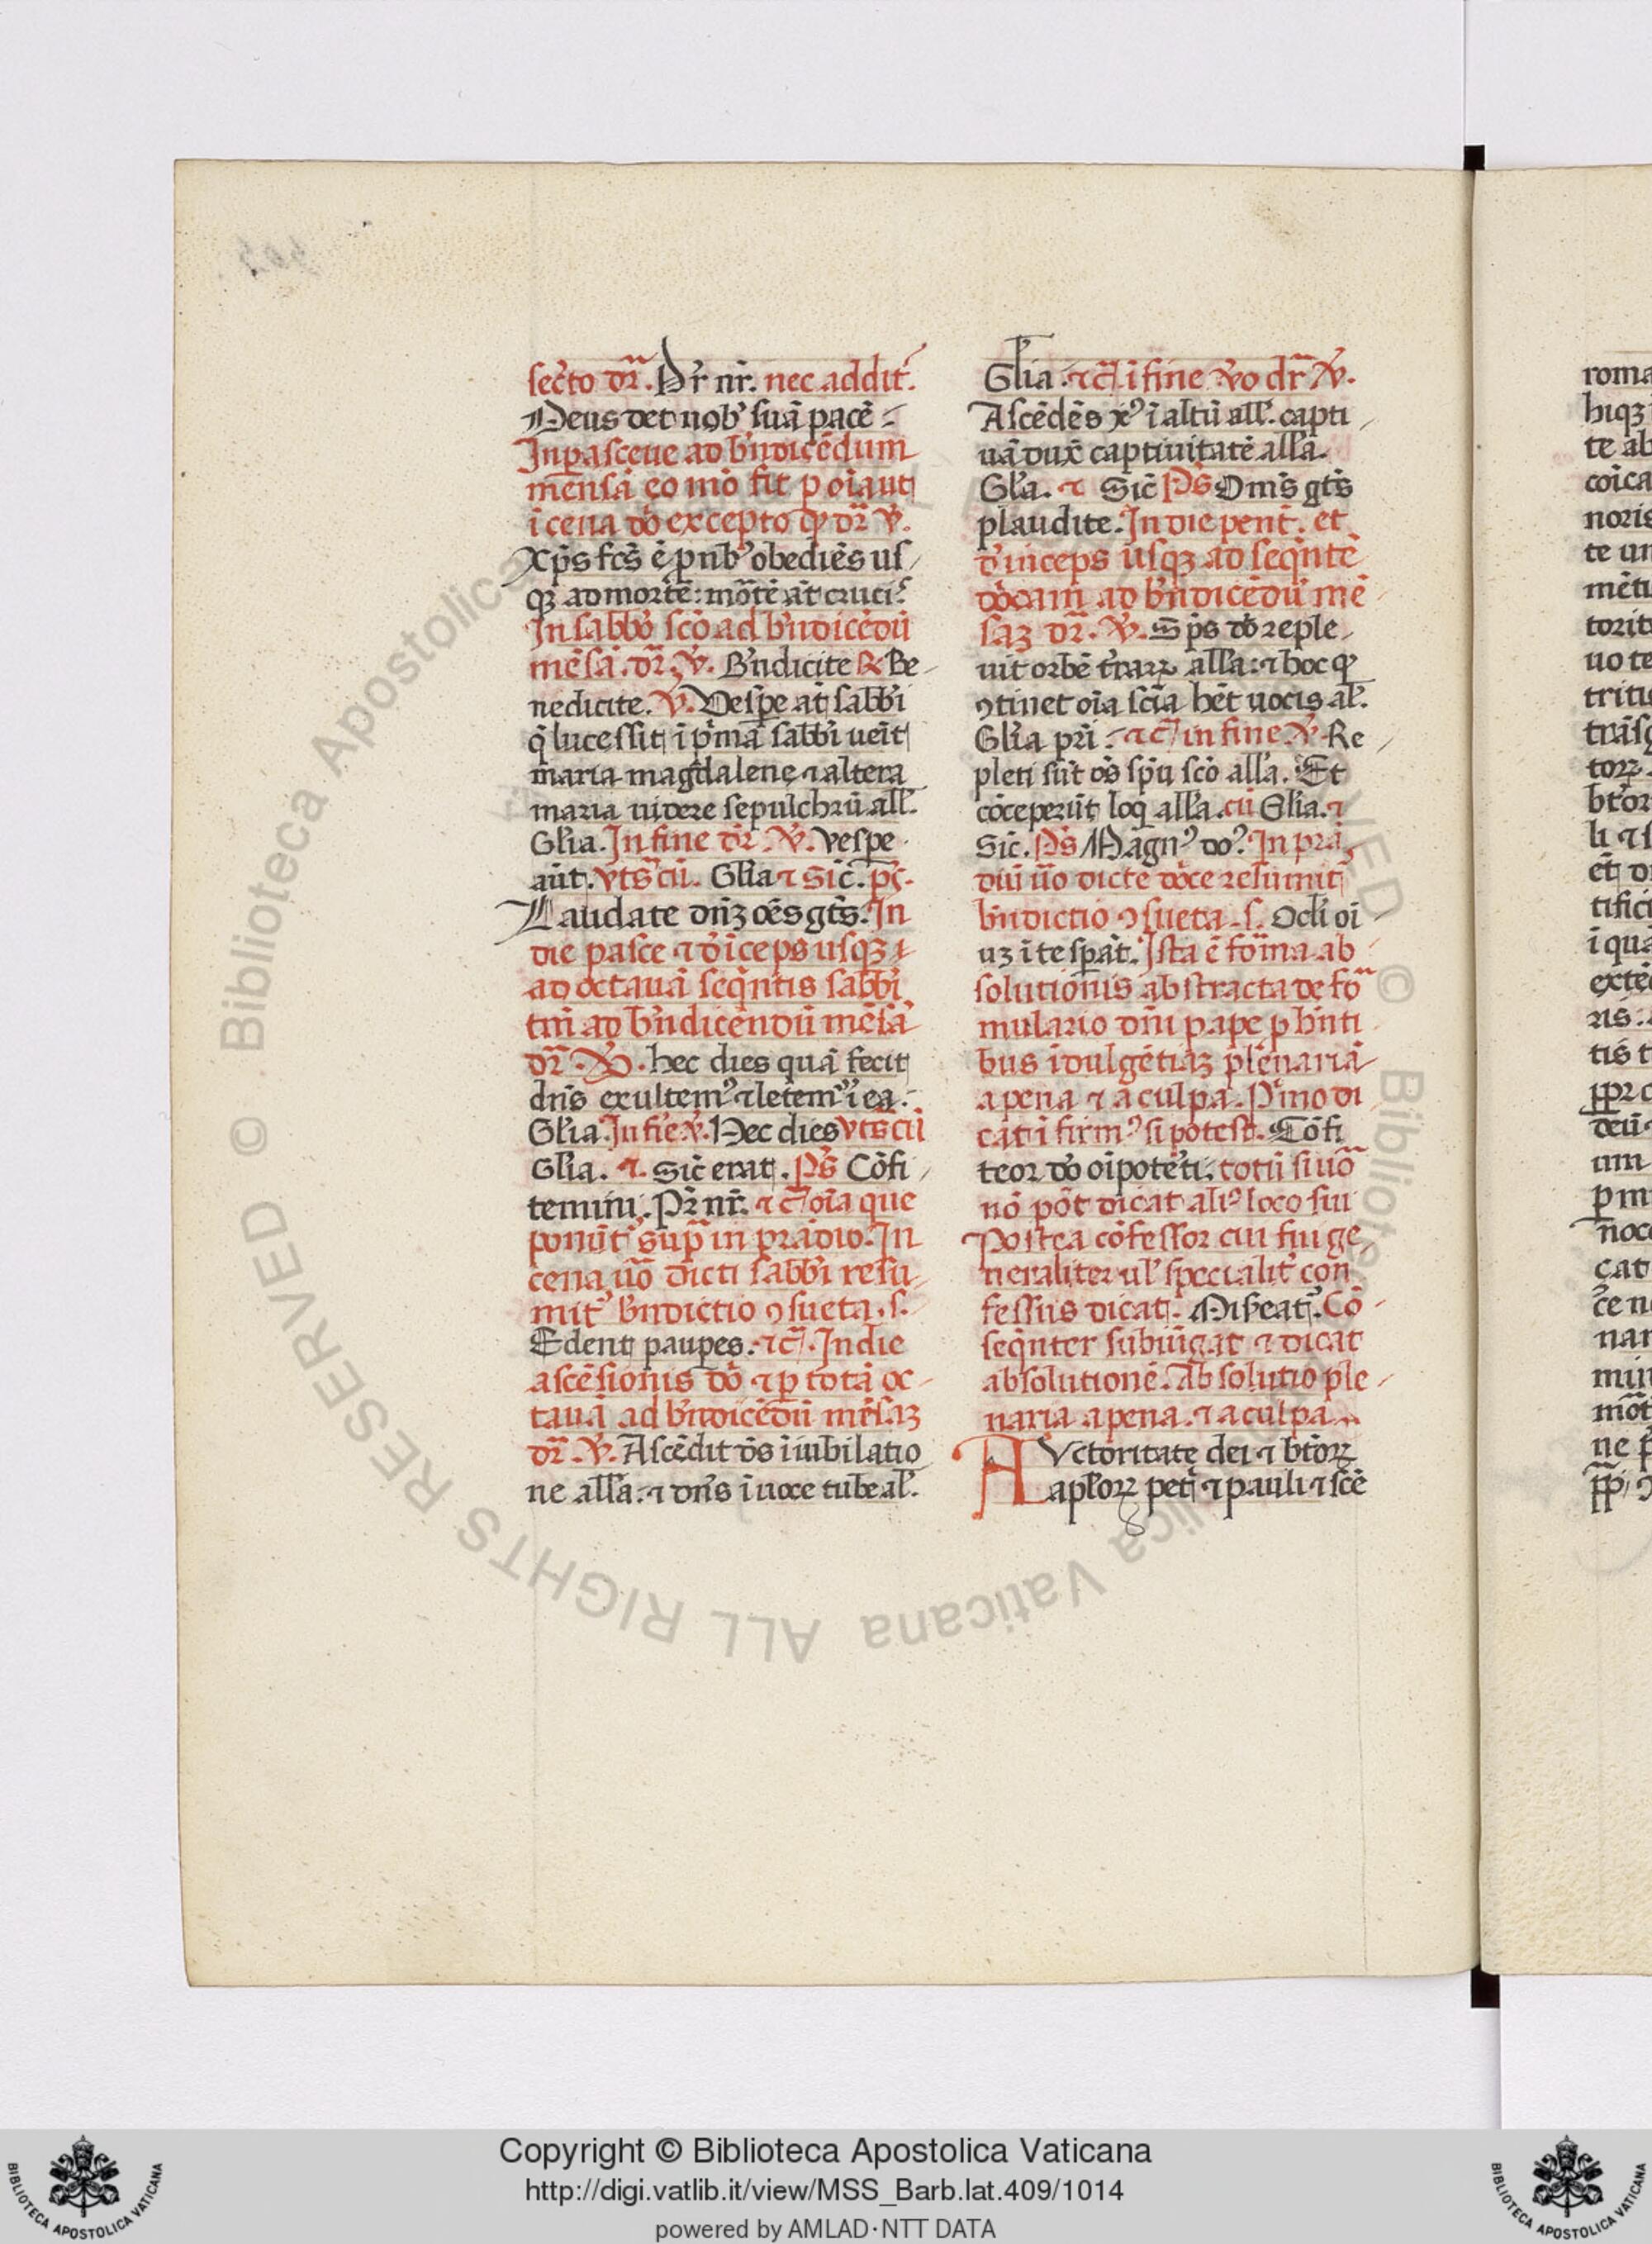 secto dr̄. Pr̄ nr̄. nec addit᷑.
Deus det nob᷒ suā pacē
In pasceue ad bn̄dicēdum
mensā eo mō fit p oīa ut
ī cena dō excepto qꝫ dr̄ ℣.
Xp̄s fcs̄ ē p nob᷒ obediēs us
qꝫ ad mortē: mōtē āt cruci᷒
In sabbō scō ad bn̄dicēdū
mēsā. dr̄. ℣. Bn̄dicite ℞ Be
nedicite. ℣. Vespe at̄ sabbi
q̄ lucessit ī p̄ma sabbi ueīt
maria magdalene ⁊ altera
maria uidere sepulchrū all̄.
Gl̄ia. In fine dr̄. ℣. Vespe
aūt. vts̄ cū. Gl̄ia ⁊ Sic̄. ps̄.
Laudate dn̄ꝫ oēs gts̄. In
die pasce ⁊ dīceps usqꝫ
ad octauā seq̄ntis sabbi
tm̄ ad bn̄dicendū mēsā
dr̄. ℣. hec dies quā fecit
dn̄s exultem᷒ ⁊ letem᷒ ī ea.
Gl̄ia. In fīe ℣. Hec dies vts̄ cū
Gl̄ia. ⁊. Sic̄ erat. Ps̄ Cōfi
temini. Pr̄ nr̄. ⁊ c̄ oīa que
ponūt᷑ sup̄ in prādio. In
cena uō dicti sabbi resu
mit᷑ bn̄dictio ꝯsueta. s.
Edent paupes. ⁊ c̄. In die
ascēsionis dō ⁊ p totā oc
tauā ad bn̄dicēdū mēsaꝫ
dr̄. ℣. Ascēdit ds̄ ī iubilatio
ne all̄a. ⁊ dn̄s ī uoce tube al̄.
Gl̄ia. ⁊ c̄. ī fine v̄o dr̄ ℣.
Ascēdēs xp᷒ ī altū all̄. capti
uā duxᷓ captiuitatē all̄a.
Gl̄a. ⁊ Sic̄ Ps̄ Oms̄ gts̄
plaudite. In die pent̄. et
d̄inceps usqꝫ ad seq̄ntē
dōcam ad bn̄dicēdū mē
saꝫ dr̄. ℣. Sps̄ dō reple
uit orbē trāꝝ all̄a: ⁊ hoc qꝫ
ꝯtinet oīa scīa hēt uocis al̄.
Gl̄ia pri᷒. ⁊ c̄ in fine. ℣. Re
pleti sūt oēs sp̄u scō all̄a. Et
cōceperūt loq̄ all̄a. cū Gl̄ia. ⁊
Sic̄. Ps̄ Magn᷒ do᷒. In prā
diū uō dicte dōce resumit᷑
bn̄dictio ꝯsueta. s. Ocli oī
uꝫ ī te spāt. Ista ē foīma ab
solutionis abstracta de fō
mulario dn̄i pape p hn̄ti
bus īdulgētiaꝫ plenariā
a pena ⁊ a culpa. Pᷓmo di
cat ī firm᷒ si potest. Cōfi
teor dō oīpotēti. totū si uō
nō pōt dicat ali᷒ loco sui
Postea cōfessor cui fiu ge
neraliter ul̄ specialit᷑ con
fessus dicat. Mis̄eat᷑. Cō
seq̄nter subiūgat ⁊ dicat
absolutionē. Absolutio ple
naria a pena. ⁊ a culpa.
AUctoritate dei ⁊ btōꝝ
apl̄oꝝ petī ⁊ pauli ⁊ scē
Copyright © Biblioteca Apostolica Vaticana
http://digi.vatlib.it/view/MSS_Barb.lat.409/1014
powered by AMLAD·NTT DATA
BIBLIOTECA APOSTOLICA VATICANA
BIBLIOTECA APOSTOLICA VATICANA
© Biblioteca Apostolica Vaticana ALL RIGHTS RESERVED